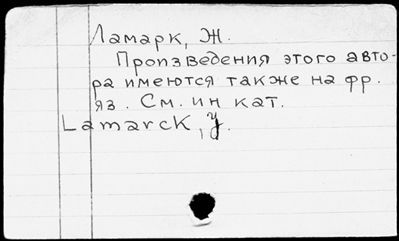 Ламарк, Ж.
Произведения этого авто-
ра имеются также на фр.
яз. См. ин кат.
Lamarck, J.